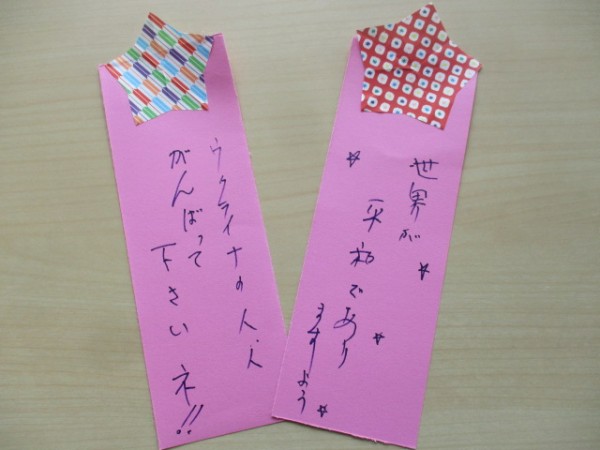 世界が☆
☆平和であり☆
ますよう☆
ウクライナの人々
がんばって
下さいネ!!